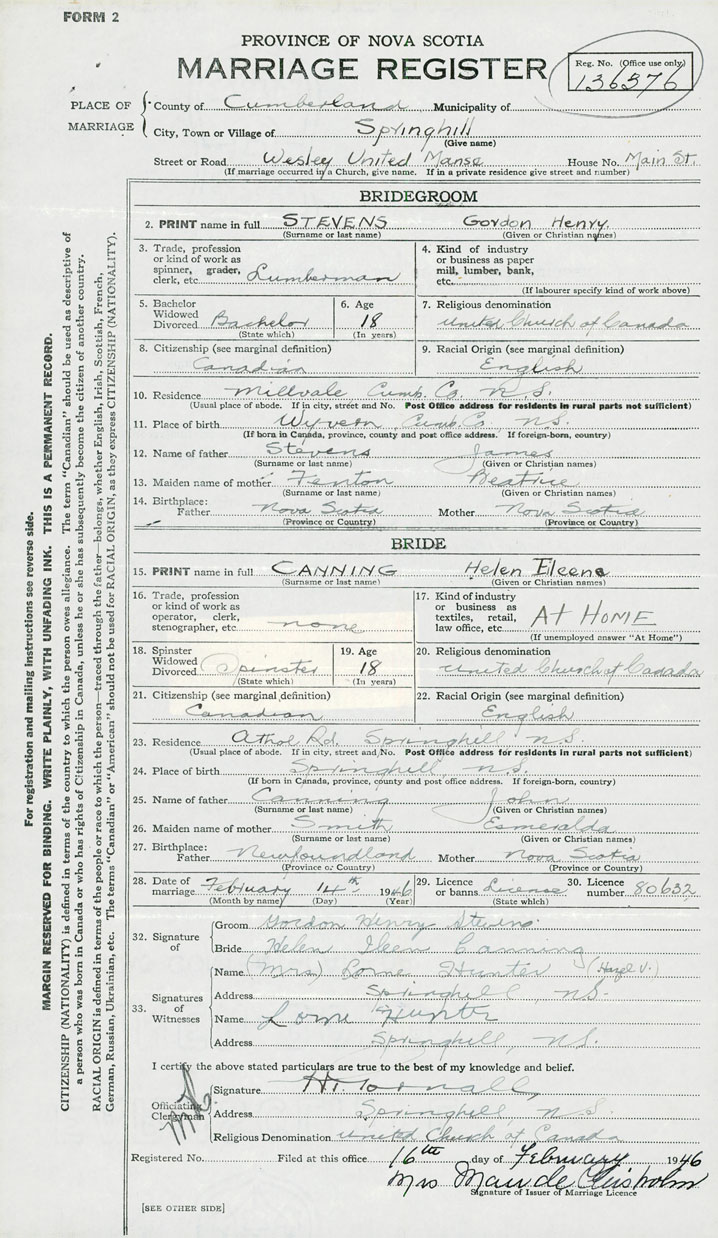 FORM 2
PROVINCE OF NOVA SCOTIA
MARRIAGE REGISTER
Reg. No. (Office use only)
136376
PLACE OF MARRIAGE
County of Cumberland Municipality of
City, Town or Village of Springhill
(Give name)
Street or Road Wesley United Manse House No. Main St.
(If marriage occurred in a Church, give name. If in a private residence give street and number)
BRIDEGROOM
2. PRINT name in full STEVENS Gordon Henry
(Surname or last name) (Given or Christian names)
3. Trade, profession or kind of work as spinner, grader, clerk, etc. Lumberman
4. Kind of industry or business as paper mill, lumber, bank, etc.
(If labourer specify kind of work above)
5. Bachelor Widowed Divorced Bachelor
(State which)
6. Age 18
(In years)
7. Religious denomination
United Church of Canada
8. Citizenship (see marginal definition)
Canadian
9. Racial Origin (see marginal definition)
English
10. Residence Millvale Cumb. Co. N.S.
(Usual place of abode. If in city, street and No. Post Office address for residents in rural parts not sufficient)
11. Place of birth Wyvern Cumb. Co. N.S.
(If born in Canada, province, county and post office address. If foreign-born, country)
12. Name of father Stevens James
(Surname or last name) (Given or Christian names)
13. Maiden name of mother Fenton Beatrice
(Surname or last name) (Given or Christian names)
14. Birthplace: Father Nova Scotia Mother Nova Scotia
(Province or Country) (Province or Country)
BRIDE
15. PRINT name in full CANNING Helen Eileene
(Surname or last name) (Given or Christian names)
16. Trade, profession or kind of work as operator, clerk, stenographer, etc. none
17. Kind of industry or business as textiles, retail, law office, etc. AT HOME
(If unemployed answer "At Home")
18. Spinster Widowed Divorced Spinster
(State which)
19. Age 18
(In years)
20. Religious denomination
United Church of Canada
21. Citizenship (see marginal definition)
Canadian
22. Racial Origin (see marginal definition)
English
23. Residence Athol Rd. Springhill N.S.
(Usual place of abode. If in city, street and No. Post Office address for residents in rural parts not sufficient)
24. Place of birth Springhill N.S.
(If born in Canada, province, county and post office address. If foreign-born, country)
25. Name of father Canning John
(Surname or last name) (Given or Christian names)
26. Maiden name of mother Smith Esmeralda
(Surname or last name) (Given or Christian names)
27. Birthplace: Father Newfoundland Mother Nova Scotia
(Province or Country) (Province or Country)
28. Date of marriage February 14th 1946
(Month by name) (Day) (Year)
29. Licence or banns License
(State which)
30. Licence number 80632
32. Signature of
Groom Gordon Henry Stevens
Bride Helen Ileen Canning
33. Signatures of Witnesses
Name (Mrs) Lorne Hunter (Hazel V.)
Address Springhill N.S.
Name Lorne Hunter
Address Springhill, N.S.
I certify the above stated particulars are true to the best of my knowledge and belief.
Officiating Clergyman
Signature
Address Springhill, N.S.
Religious Denomination United Church of Canada
Registered No. Filed at this office 16th day of February 1946
Mrs Maude Chisholm
Signature of Issuer of Marriage Licence
[SEE OTHER SIDE]
For registration and mailing instructions see reverse side.
MARGIN RESERVED FOR BINDING. WRITE PLAINLY, WITH UNFADING INK. THIS IS A PERMANENT RECORD.
CITIZENSHIP (NATIONALITY) is defined in terms of the country to which the person owes allegiance. The term "Canadian" should be used as descriptive of
a person who was born in Canada or who has rights of Citizenship in Canada, unless he or she has subsequently become the citizen of another country.
RACIAL ORIGIN is defined in terms of the people or race to which the person—traced through the father—belongs, whether English, Irish, Scottish, French,
German, Russian, Ukrainian, etc. The terms "Canadian" or "American" should not be used for RACIAL ORIGIN, as they express CITIZENSHIP (NATIONALITY).